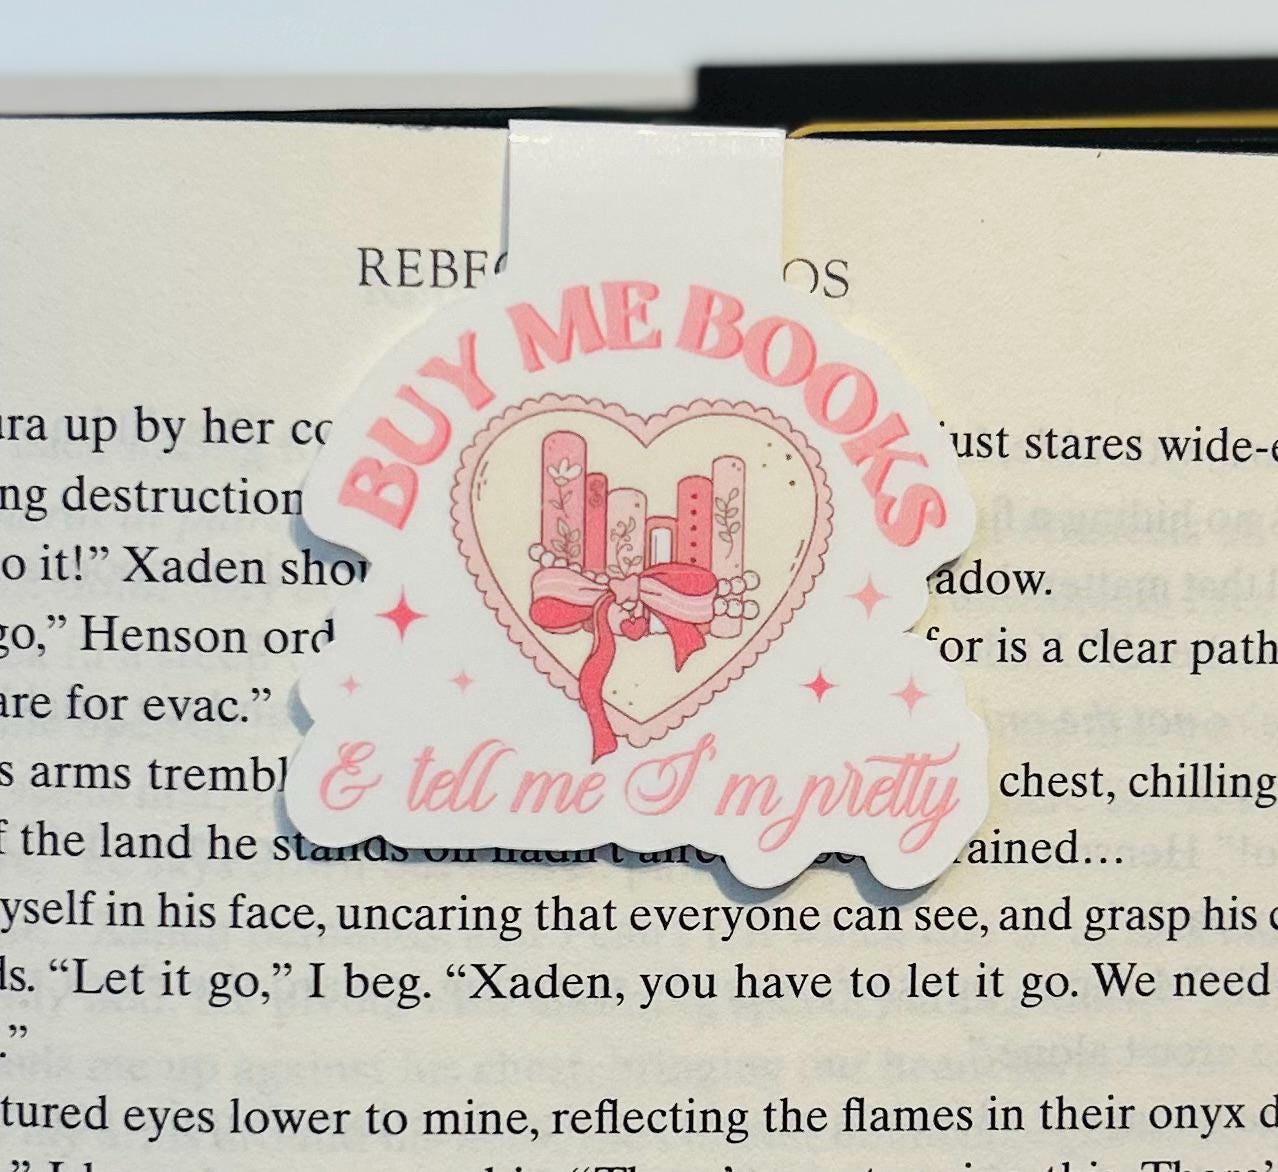 BUY ME BOOKS
& tell me I'm pretty
up by her
just stares
destruction
it!” Xaden
go,” Henson
for is a clear path
for evac.”
arms
chest, chilling
the land he stands
in his face, uncaring that everyone can see, and grasp his
“Let it go,” I beg. “Xaden, you have to let it go. We need
.”
eyes lower to mine, reflecting the flames in their onyx